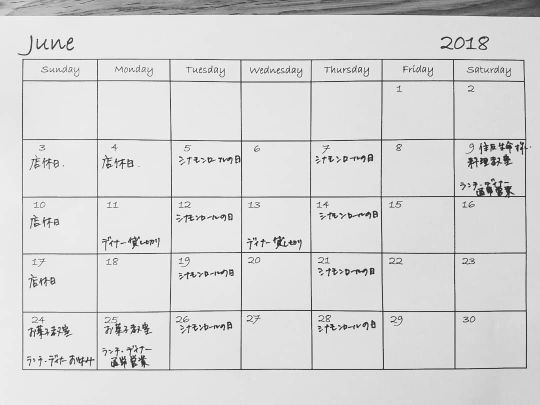 June 2018
Sunday Monday Tuesday Wednesday Thursday Friday Saturday
1 2
3 4 5 6 7 8 9 住友生命様
店休日. 店休日. シナモンロールの日 シナモンロールの日 料理教室
ランチ・ディナー
通常営業
10 11 12 13 14 15 16
店休日 シナモンロールの日 シナモンロールの日
ディナー貸し切り ディナー貸し切り
17 18 19 20 21 22 23
店休日 シナモンロールの日 シナモンロールの日
24 25 26 27 28 29 30
お菓子教室 お菓子教室 シナモンロールの日 シナモンロールの日
ランチ・ディナーお休み ランチ・ディナー
通常営業